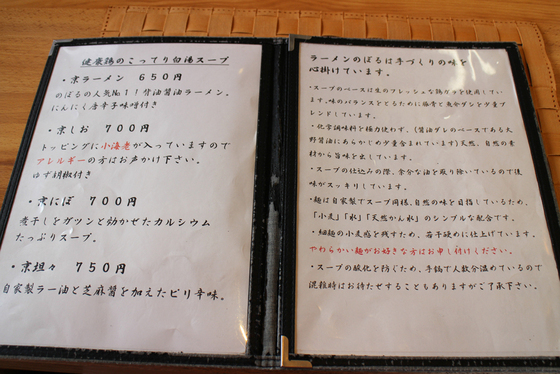 健康鶏のこってり白湯スープ
・京ラーメン 650円
のぼるの人気№1!背油醤油ラーメン。
にんにく唐辛子味噌付き
・京しお 700円
トッピングに小海老が入っていますので
アレルギーの方はお声かけ下さい。
ゆず胡椒付き
・京にぼ 700円
煮干しをガツンと効かせたカルシウム
たっぷりスープ。
・京坦々 750円
自家製ラー油と芝麻醤を加えたピリ辛味。
ラーメンのぼるは手づくりの味を
心掛けています。
・スープのベースは生のフレッシュな鶏ガラを使用してい
ます。味のバランスをとるために豚骨と魚介ダシを少量ブ
レンドしています。
・化学調味料を極力使わず、(醤油ダレのベースである大
野醤油にあらかじめ少量含まれています)天然、自然の素
材から旨味を出しています。
・スープの仕込みの際、余分な油を取り除いているので後
味がスッキリしています。
・麺は自家製でスープ同様、自然の味を目指しているため、
「小麦」「水」「天然かん水」のシンプルな配合です。
・細麺の小麦感を残すため、若干硬めに仕上げています。
やわらかい麺がお好きな方はお申し付けください。
・スープの酸化を防ぐため、手鍋で人数分温めているので
混雑時はお待たせすることもありますがご了承下さい。